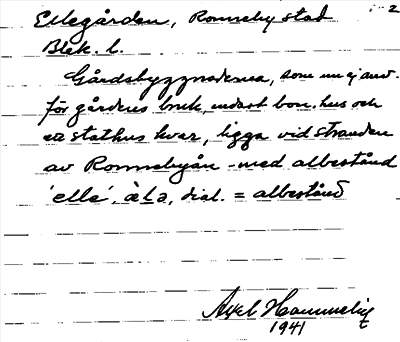 Ellegården, Ronneby stad 2
Blek. l.
Gårdsbyggnaderna, som nu ej anv.
för gårdens bruk, endast bon.hus och
ett stathus kvar, ligga vid stranden
av Ronnebyån - med albestånd
'elle', àLa, dial. = albestånd
Axel
1941